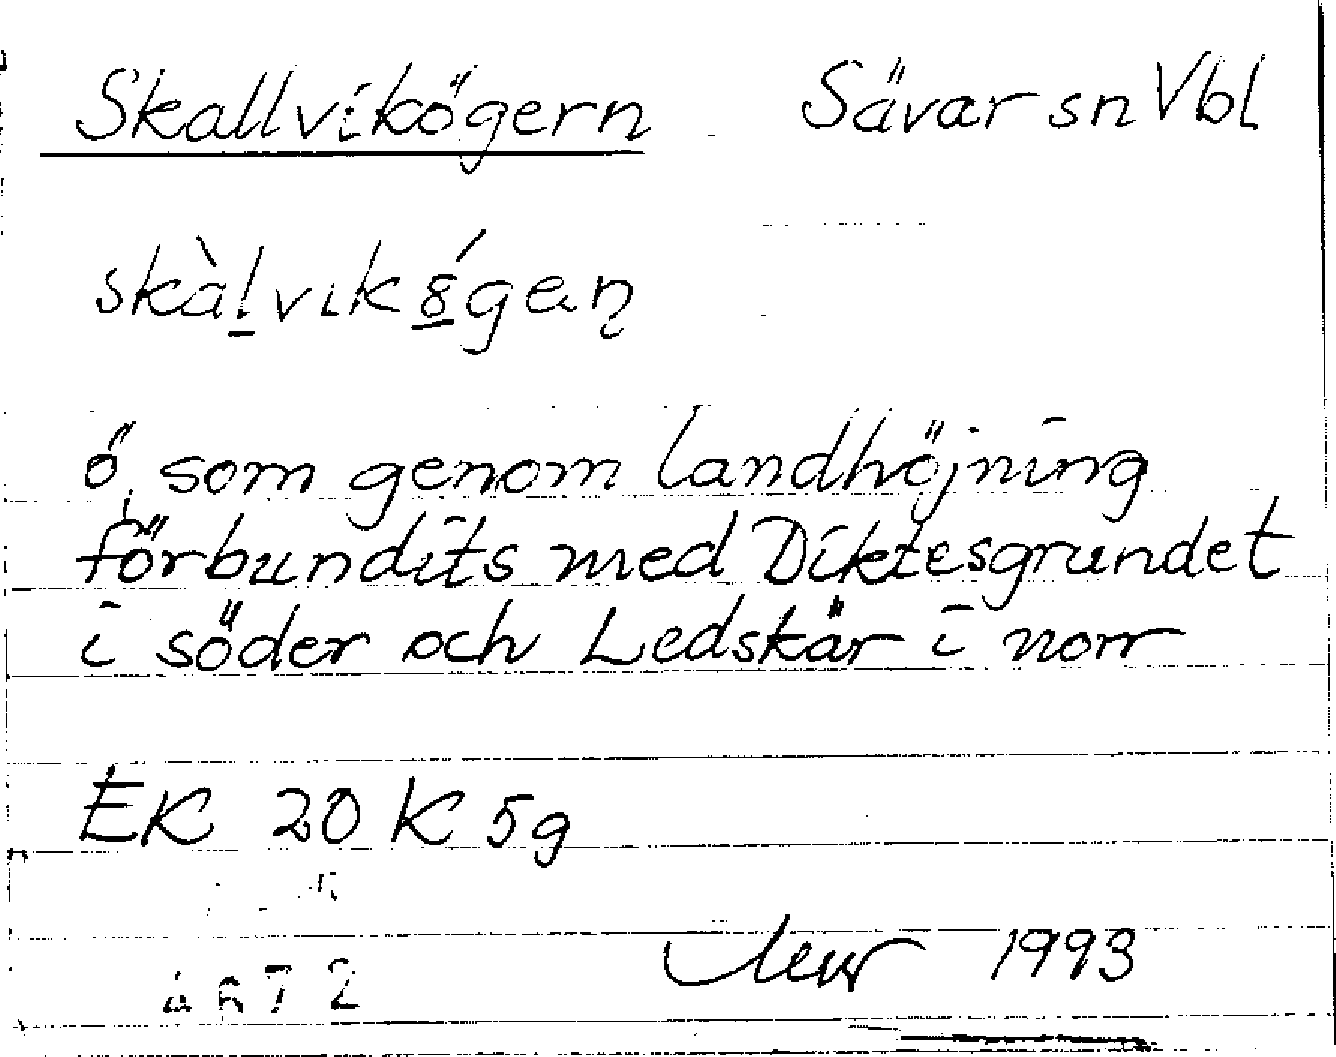 Skallviksögern Sävar sn Vbl
skàl̲vık8̲́gaņ
ö, som genom landhöjning
förbundits med Diktesgrundet
i söder och Ledskär i norr
EK 20 K 5g
1993